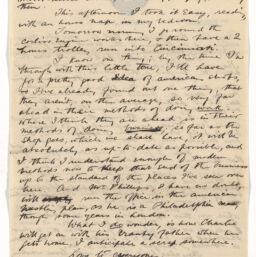 them.
This afternoon, I took it easy, reading
with an hours nap in my bedroom.
Tomorrow morning I proceed to the
Corliss engine works here, so then have a 2
hours trolley run into Cincinnati.
I know one thing, by the time I'm
through with this little tour, I'll have
a pretty good idea of American shops,
as I've already found out one thing, that
they aren't, on the average, so very far
ahead in their methods of doing work
where I think they are ahead is in their
methods of doing business, so far as the
shop goes which we shall have, it will be
absolutely, as up-to-date as possible, and
I think I understand enough of modern
methods now to keep that end of the business
up to the standard of the places I've seen over
here. And Mr Phillips, I have no doubt,
will run the office in the American
plan, as he is a Philadelphia man
though some years in London.
What I do wonder, is how Charlie
will get on with his father when he
gets home, I anticipate a scrap somewhere.
Love to everyone